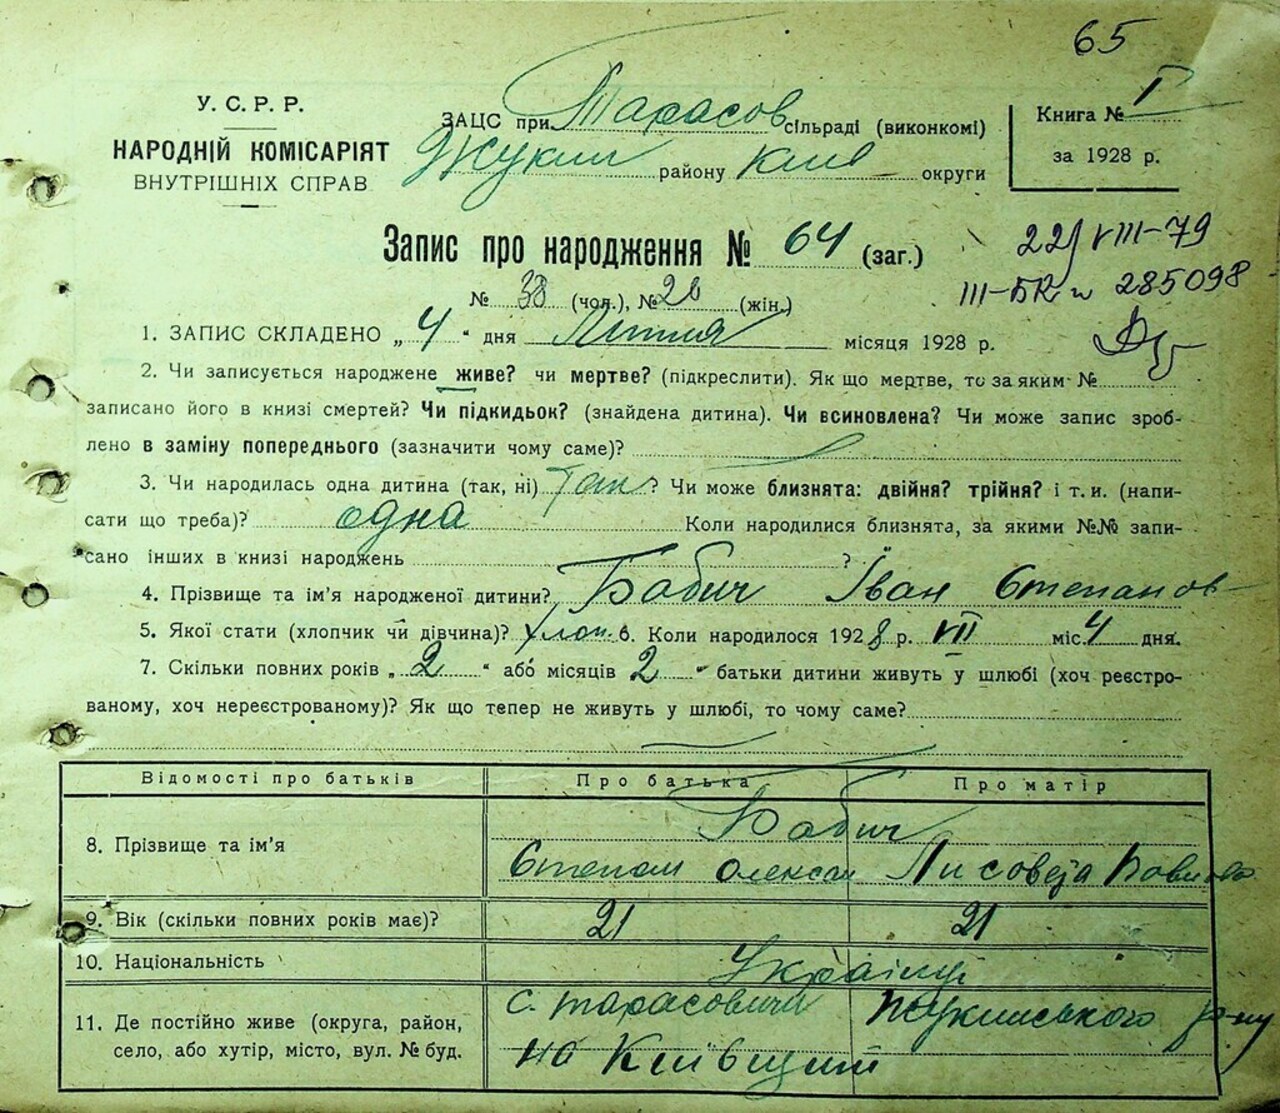 65
У. С. Р. Р.
НАРОДНІЙ КОМІСАРІЯТ
ВНУТРІШНІХ СПРАВ
ЗАЦС при Тарасов сільраді (виконкомі)
Жукин району Киів округи
Книга № I
за 1928 р.
Запис про народження № 64 (заг.)
22/VIII-79
III-БК № 285098
№ 38 (чол.), № 26 (жін.)
1. ЗАПИС СКЛАДЕНО „ 4 “ дня Липня місяця 1928 р.
2. Чи записується народжене живе? чи мертве? (підкреслити). Як що мертве, то за яким №
записано його в книзі смертей? Чи підкидьок? (знайдена дитина). Чи всиновлена? Чи може запис зроб-
лено в заміну попереднього (зазначити чому саме)?
3. Чи народилась одна дитина (так, ні) Так ? Чи може близнята: двійня? трійня? і т. и. (напи-
сати що треба)? одна Коли народилися близнята, за якими №№ запи-
сано інших в книзі народжень ?
4. Прізвище та ім'я народженої дитини? Бабич Іван Степанов
5. Якої стати (хлопчик чи дівчина)? хлоп. 6. Коли народилося 1928 р. VII міс. 4 дня.
7. Скільки повних років „ 2 “ або місяців 2 “ батьки дитини живуть у шлюбі (хоч реєстро-
ваному, хоч нереєстрованому)? Як що тепер не живуть у шлюбі, то чому саме?
Відомості про батьків Про батька Про матір
8. Прізвище та ім'я Бабич
Степан Олексан Лисовета Павлова
9. Вік (скільки повних років має)? 21 21
10. Національність Українці
11. Де постійно живе (округа, район, с. Тарасовичи Жукинського р-ну
село, або хутір, місто, вул. № буд. на Київщині